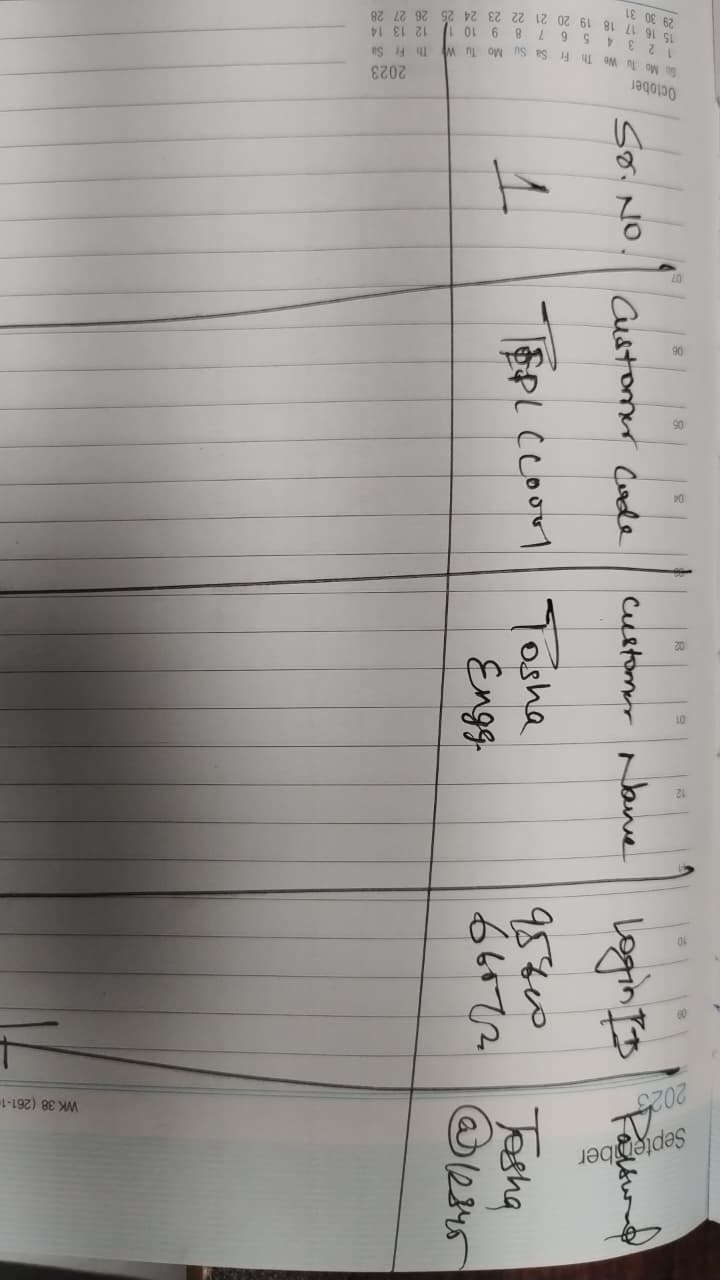 Sr. No.
Customer Code
Customer Name
Login ID
Password
1
Tosha
Engg.
Tosha
@12345
October
2023
Su Mo Tu We Th Fr Sa Su Mo Tu We Th Fr Sa
1 2 3 4 5 6 7 8 9 10 11 12 13 14
15 16 17 18 19 20 21 22 23 24 25 26 27 28
29 30 31
07
06
05
04
03
02
01
12
11
10
09
2023
September